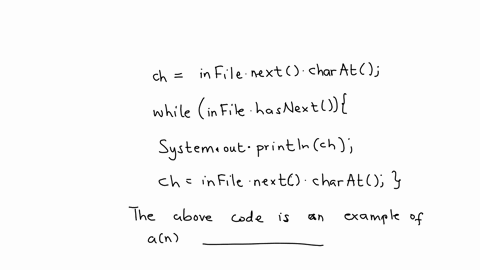 ch = inFile.next().charAt();
while (inFile.hasNext()){
System.out.println(ch);
ch = inFile.next().charAt(); }
The above code is an example of
a(n) __________